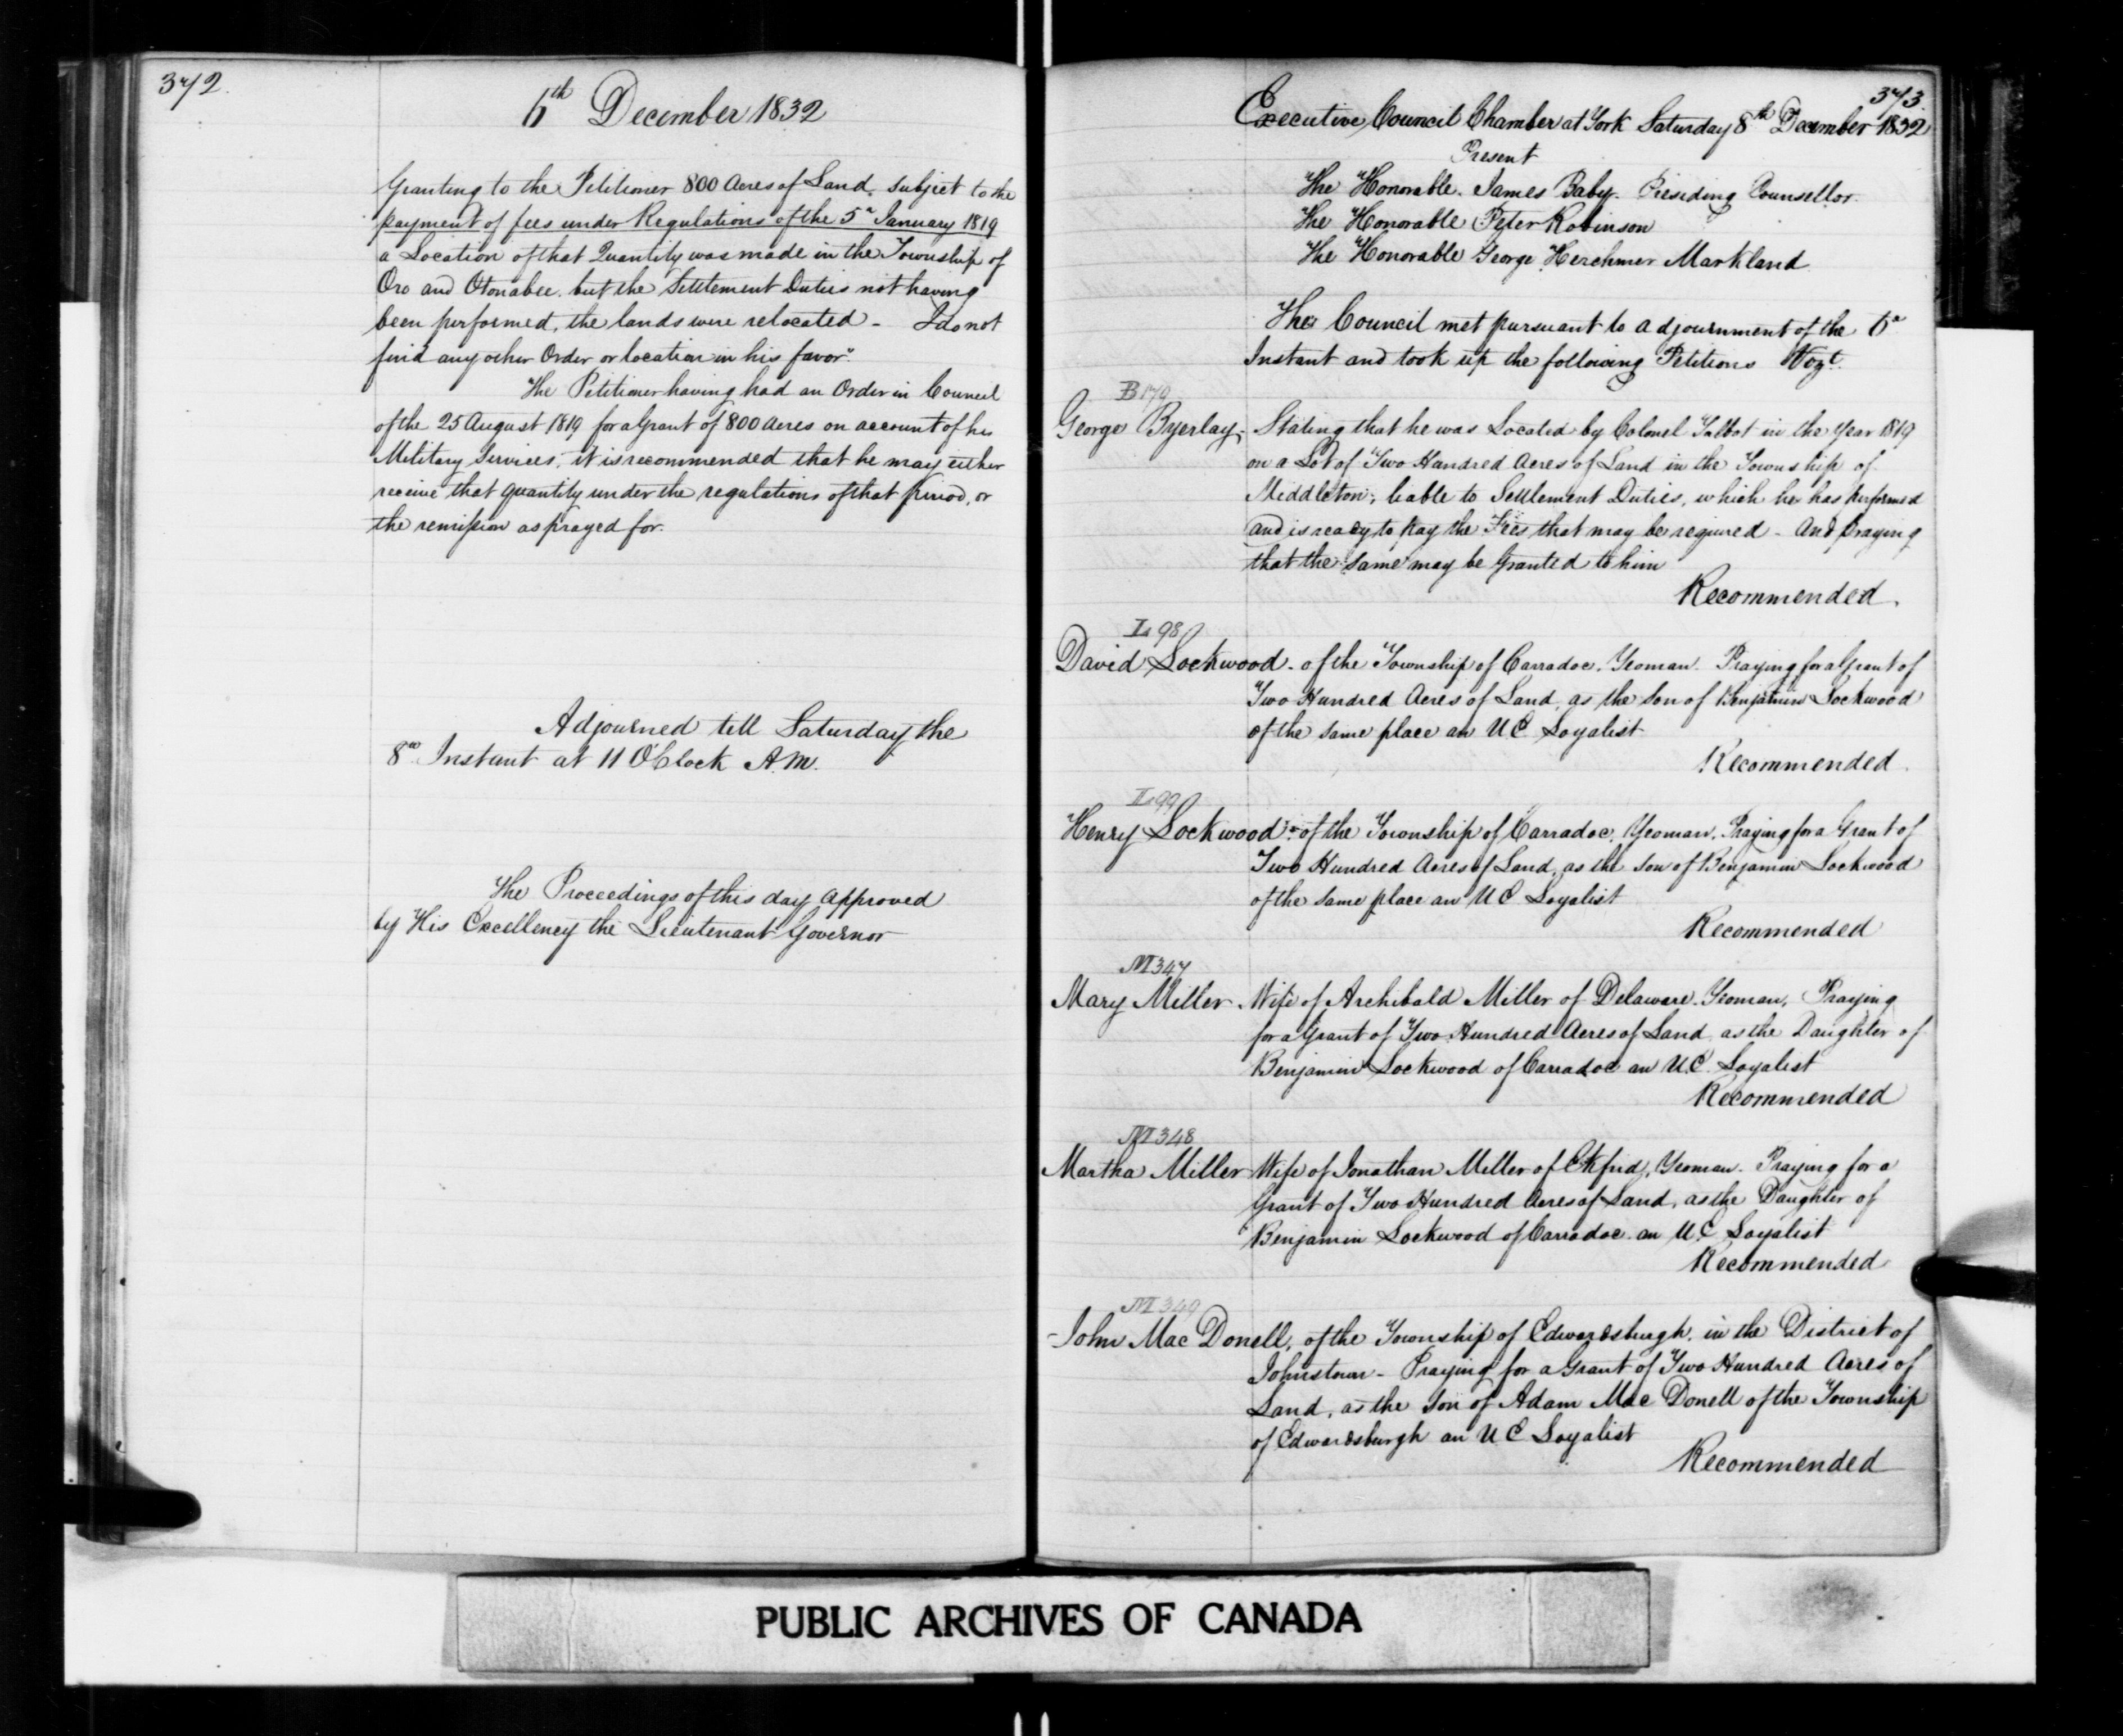 372.
6th December 1832
Granting to the Petitioner 800 Acres of Land. Subject to the
payment of fees under Regulations of the 5th January 1819
a Location of that Quantity was made in the Township of
Oro and Otonabee. but the Settlement Duties not having
been performed, the lands were relocated - I do not
find any other Order or location in his favor."
The Petitioner having had an Order in Council
of the 25 August 1819 for a Grant of 800 Acres on account of his
Military Services, it is recommended that he may either
receive that quantity under the regulations of that period, or
the remission as prayed for.
Adjourned till Saturday the
8th Instant at 11 O'Clock A.M.
The Proceedings of this day Approved
by His Excellency the Lieutenant Governor
373.
Executive Council Chamber at York Saturday 8th December 1832
Present
The Honorable. James Baby. Presiding Counsellor.
The Honorable Peter Robinson
The Honorable George Herchmer Markland
The Council met pursuant to adjournment of the 6th
Instant and took up the following Petitions Vizt.
B 179
George Byerlay, Stating that he was Located by Colonel Talbot in the Year 1819
on a Lot of Two Hundred Acres of Land in the Township of
Middleton, liable to Settlement Duties, which he has performed
and is ready to pay the Fees that may be required - And Praying
that the same may be Granted to him
Recommended.
L 98
David Lockwood - of the Township of Carradoc. Yeoman. Praying for a Grant of
Two Hundred Acres of Land, as the Son of Benjamin Lockwood
of the same place an U E Loyalist
Recommended.
L 99
Henry Lockwood - of the Township of Carradoc, Yeoman, Praying for a Grant of
Two Hundred Acres of Land, as the Son of Benjamin Lockwood
of the same place an U E Loyalist
Recommended
M 347
Mary Miller. Wife of Archibald Miller of Delaware. Yeoman, Praying
for a Grant of Two Hundred Acres of Land as the Daughter of
Benjamin Lockwood of Carradoc an U.E. Loyalist
Recommended
M 348
Martha Miller Wife of Jonathan Miller of Ekfrid, Yeoman. Praying for a
Grant of Two Hundred Acres of Land, as the Daughter of
Benjamin Lockwood of Carradoc. an U.E. Loyalist
Recommended
M 349
John Mac Donell, of the Township of Edwardsburgh. in the District of
Johnstown - Praying for a Grant of Two Hundred Acres of
Land, as the Son of Adam Mac Donell of the Township
of Edwardsburgh an U E Loyalist
Recommended
PUBLIC ARCHIVES OF CANADA